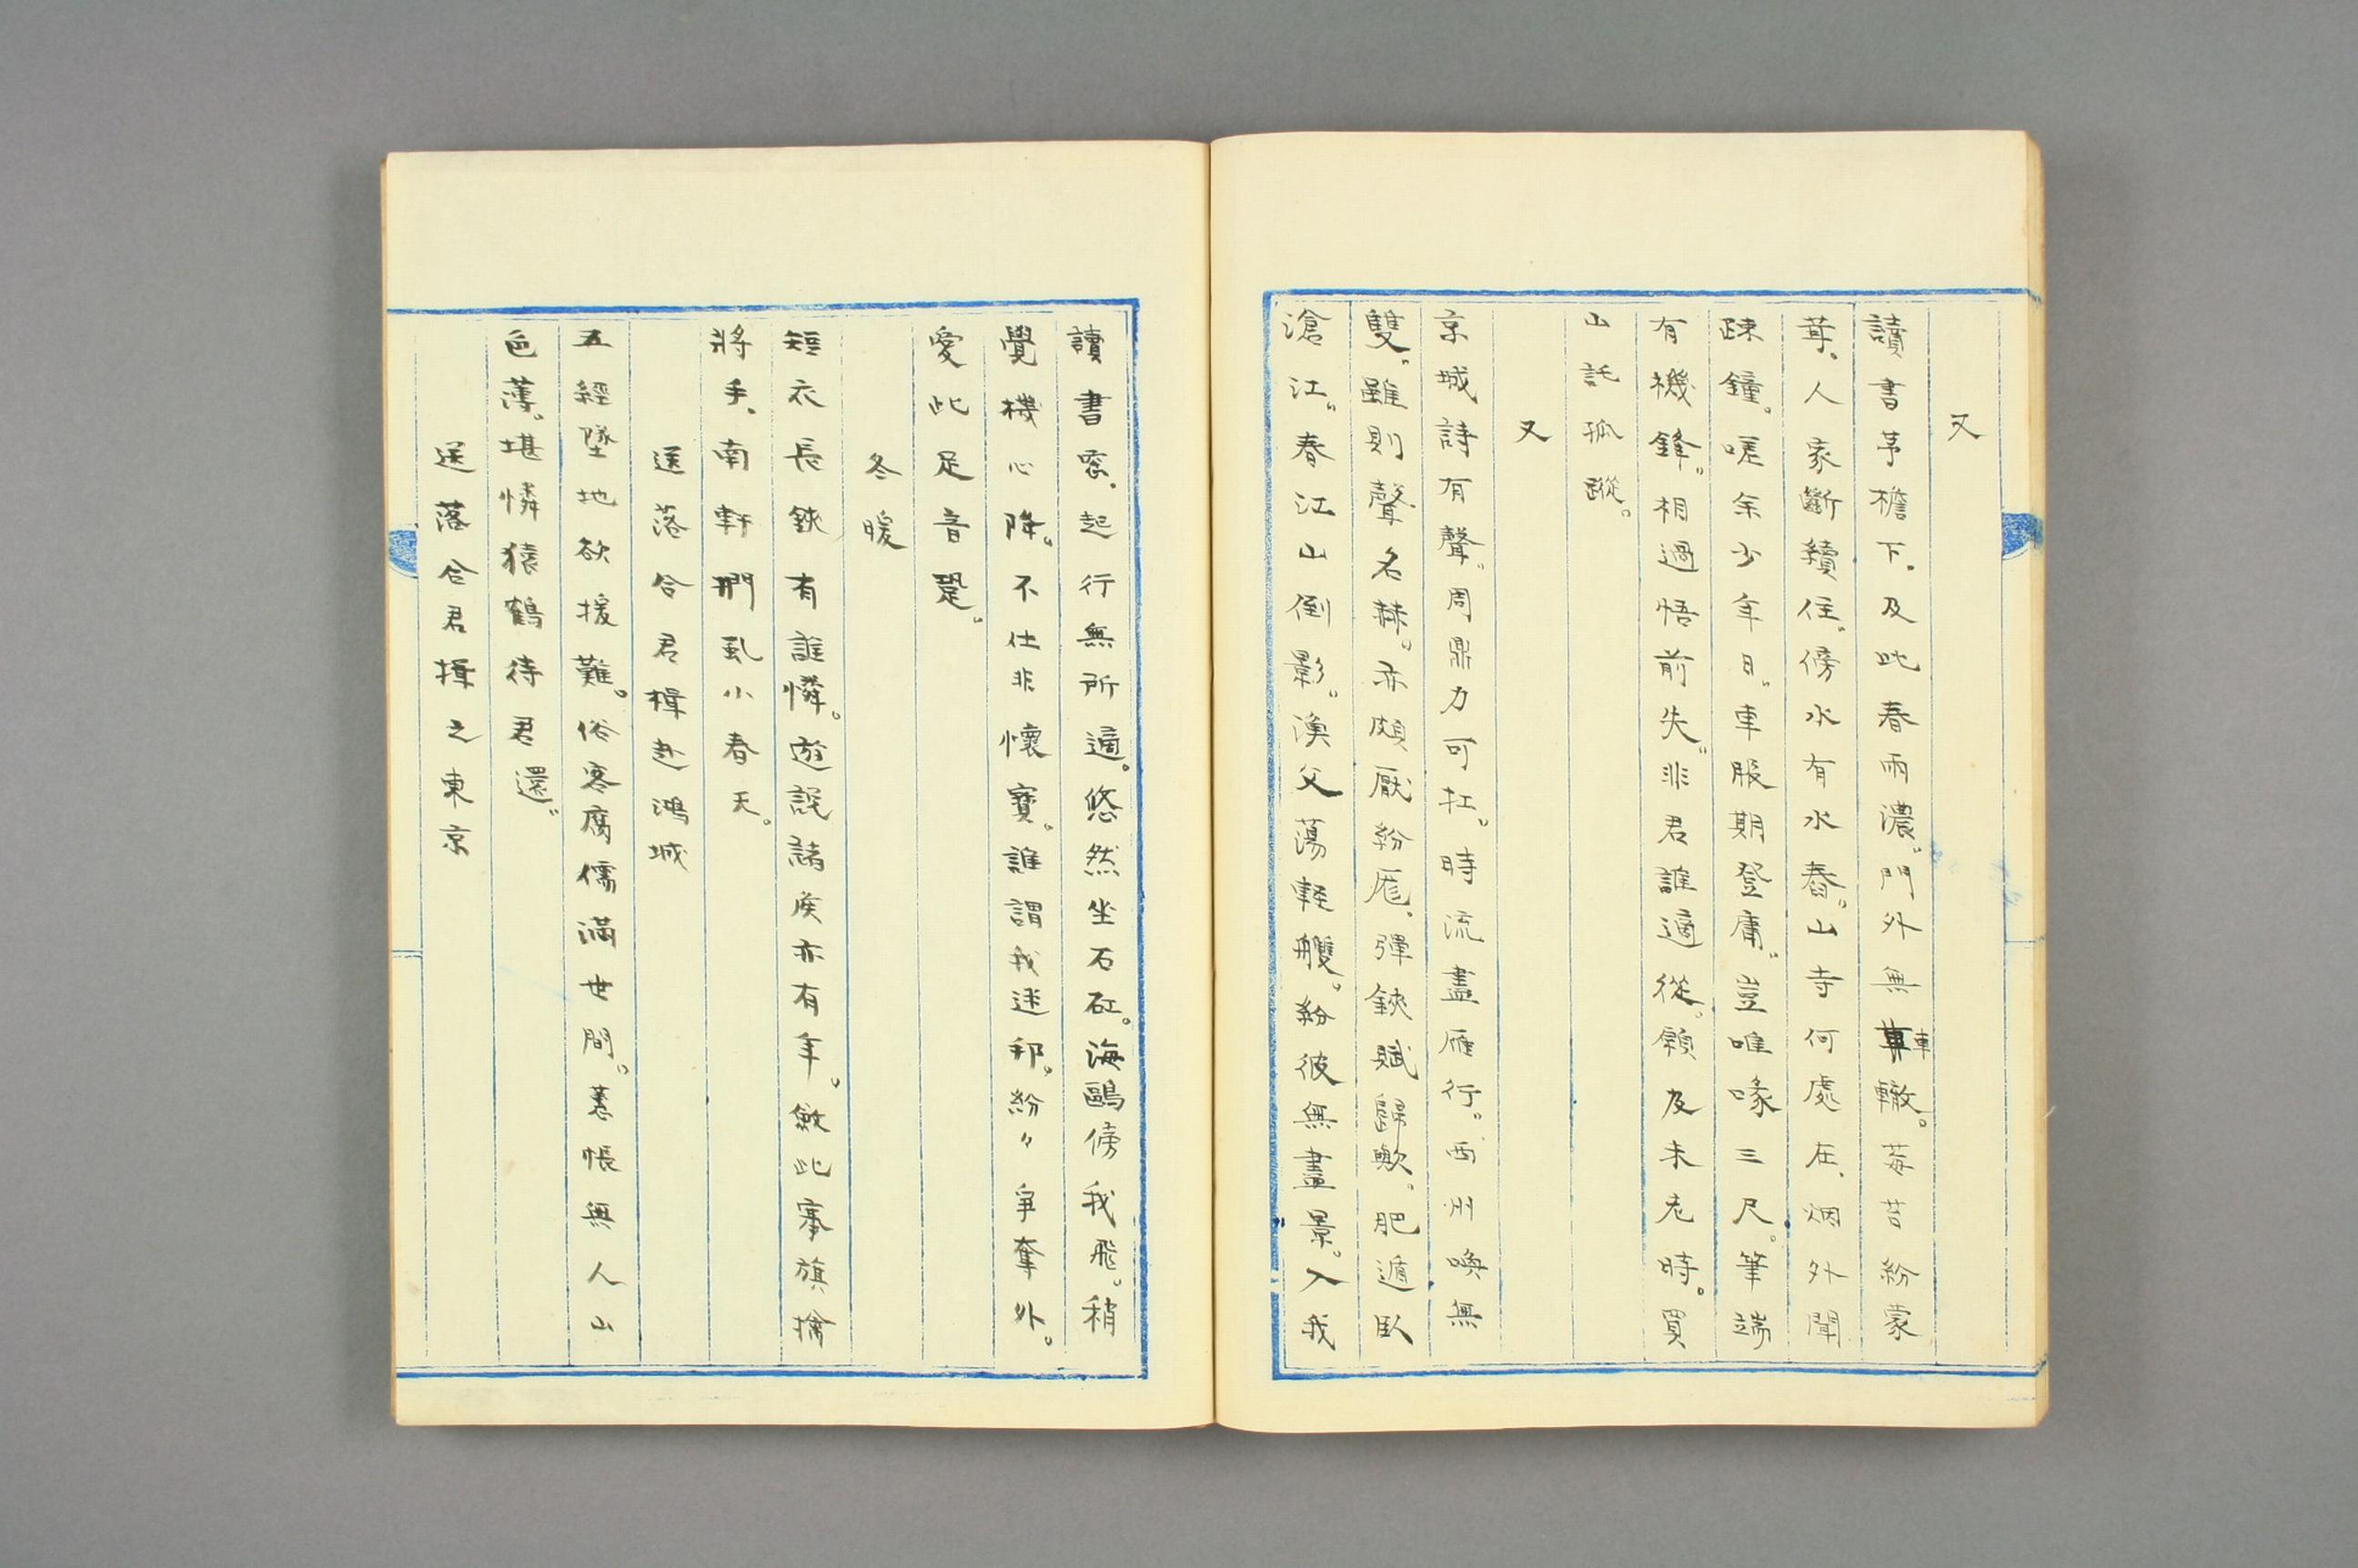 又
讀書茅檐下。及此春雨濃。門外無車轍。莓苔紛蒙
茸。人家斷續住。傍水有水舂。山寺何處在。烟外聞
疎鐘。嗟余少年日。車服期登庸。豈唯喙三尺。筆端
有機鋒。相過悟前失。非君誰適從。願及未老時。買
山託孤蹤。
又
京城詩有聲。周鼎力可扛。時流盡雁行。西州喚無
雙。雖則聲名赫。亦頗厭紛厖。彈鋏賦歸歟。肥遁臥
滄江。春江山倒影。漁父蕩軽艭。紛彼無盡景。入我
讀書窓。起行無所適。悠然坐石矼。海鷗傍我飛。稍
覺機心降。不仕非懷寶。誰謂我迷邦。紛々爭奪外。
愛此足音跫。
冬暖
短衣長鋏有誰憐。遊説諸侯亦有年。斂此搴旗擒
將手。南軒捫虱小春天。
送落合君楫赴鴻城
五經墜地欲援難。俗客腐儒満世間。蕙帳無人山
色薄。堪憐猿鶴待君還。
送落合君楫之東京